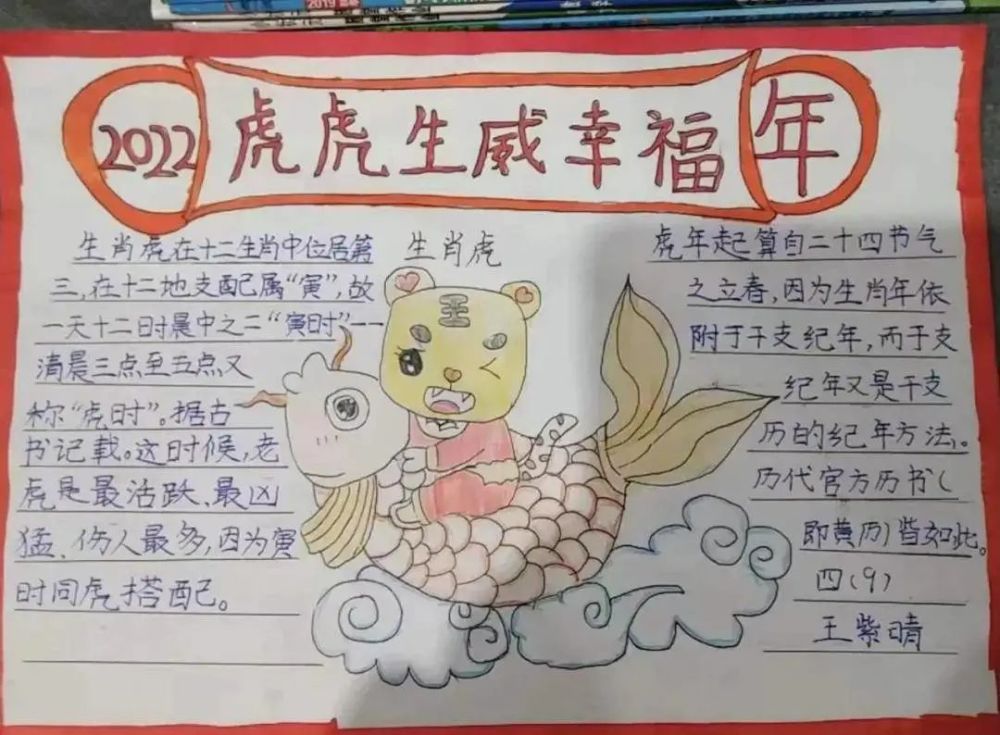 2022 虎虎生威幸福年
生肖虎在十二生肖中位居第
三,在十二地支配属“寅”,故
一天十二时晨中之二“寅时”--
清晨三点至五点又
称“虎时”。据古
书记载。这时候,老
虎是最活跃、最凶
猛、伤人最多,因为寅
时同虎搭配。
生肖虎
王
虎年起算自二十四节气
之立春,因为生肖年依
附于干支纪年,而于支
纪年又是干支
历的纪年方法,.
历代官方历书(
即黄历)皆如此。
四(9)
王紫晴
2019